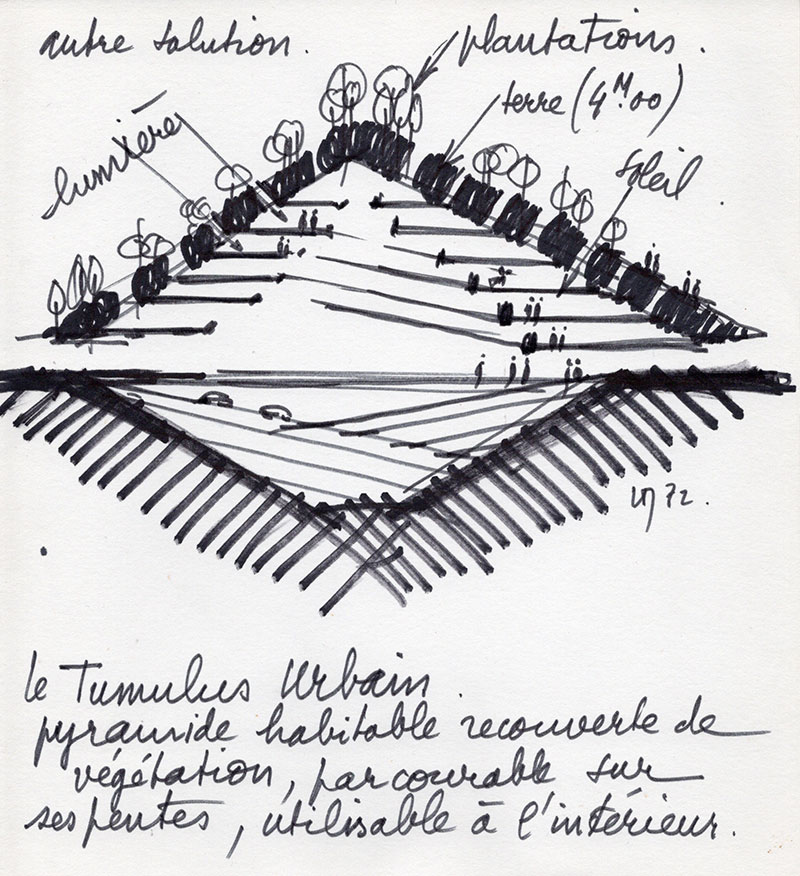 autre solution.
plantations.
terre (4M.00)
lumière
soleil.
72.
le Tumulus Urbain.
pyramide habitable recouverte de
végétation, parcourable sur
ses pentes, utilisable à l'intérieur.